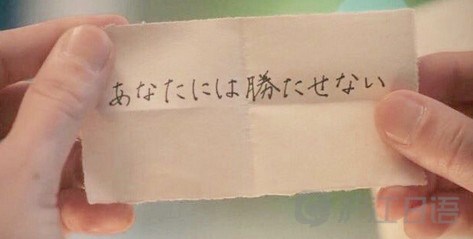 あなたには勝たせない
沪江日语